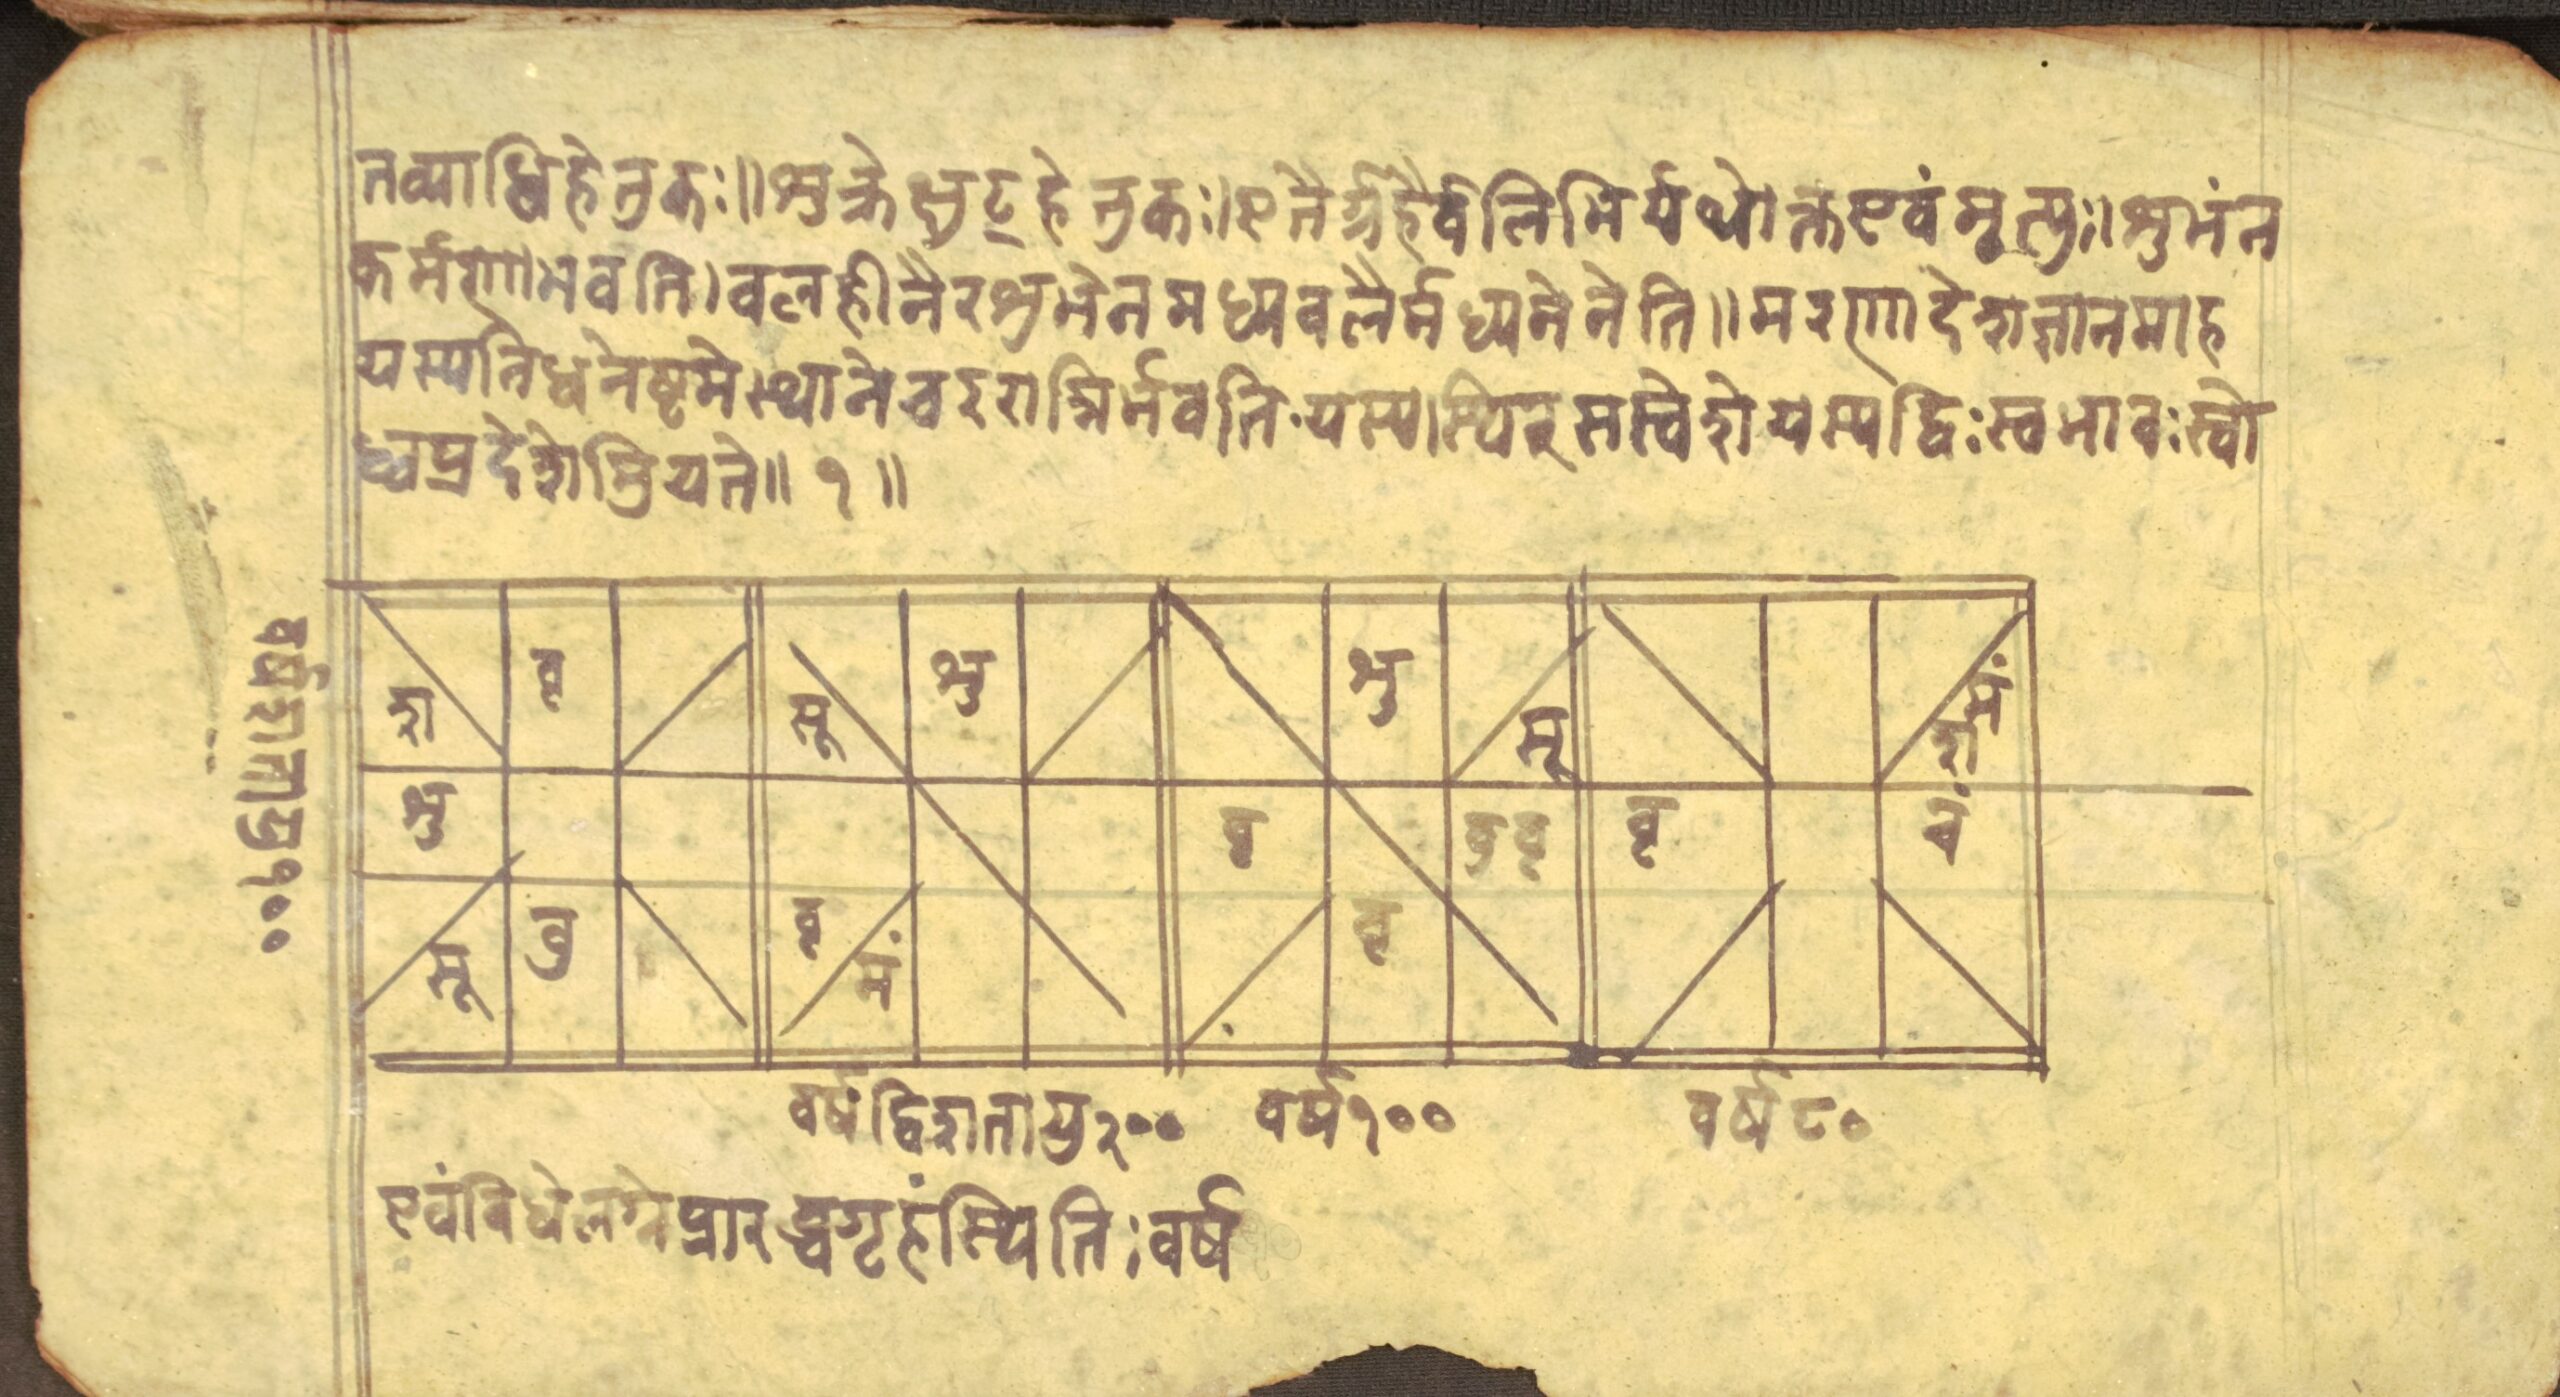 तव्याधिहेतुकः॥शुक्रेक्षुट्हेतुकः।एतैर्ग्रहैर्वलिभिर्यथोक्तएवंमृत्युः॥शुभंन
कर्मणाभवति।वलहीनैरशुभेनमध्यवलैर्मध्यमेनेति॥मरणदेशज्ञानमाह
यस्यनिधनेष्टमेस्थानेचरराशिर्भवति·यस्यास्थिरसस्वेदेशेयस्यद्विःस्वभावःस्वो
ध्वप्रदेशेम्रियते॥१॥
वर्षशतायु१००
श वृ सू शु शु सू मं श
शु वृ वु वृ वृ चं
सू वु वृ मं वृ
वर्षद्विशतायु२०० वर्ष१०० वर्ष८०
एवंविधेलग्नेप्रारब्धगृहंस्थिति;वर्ष